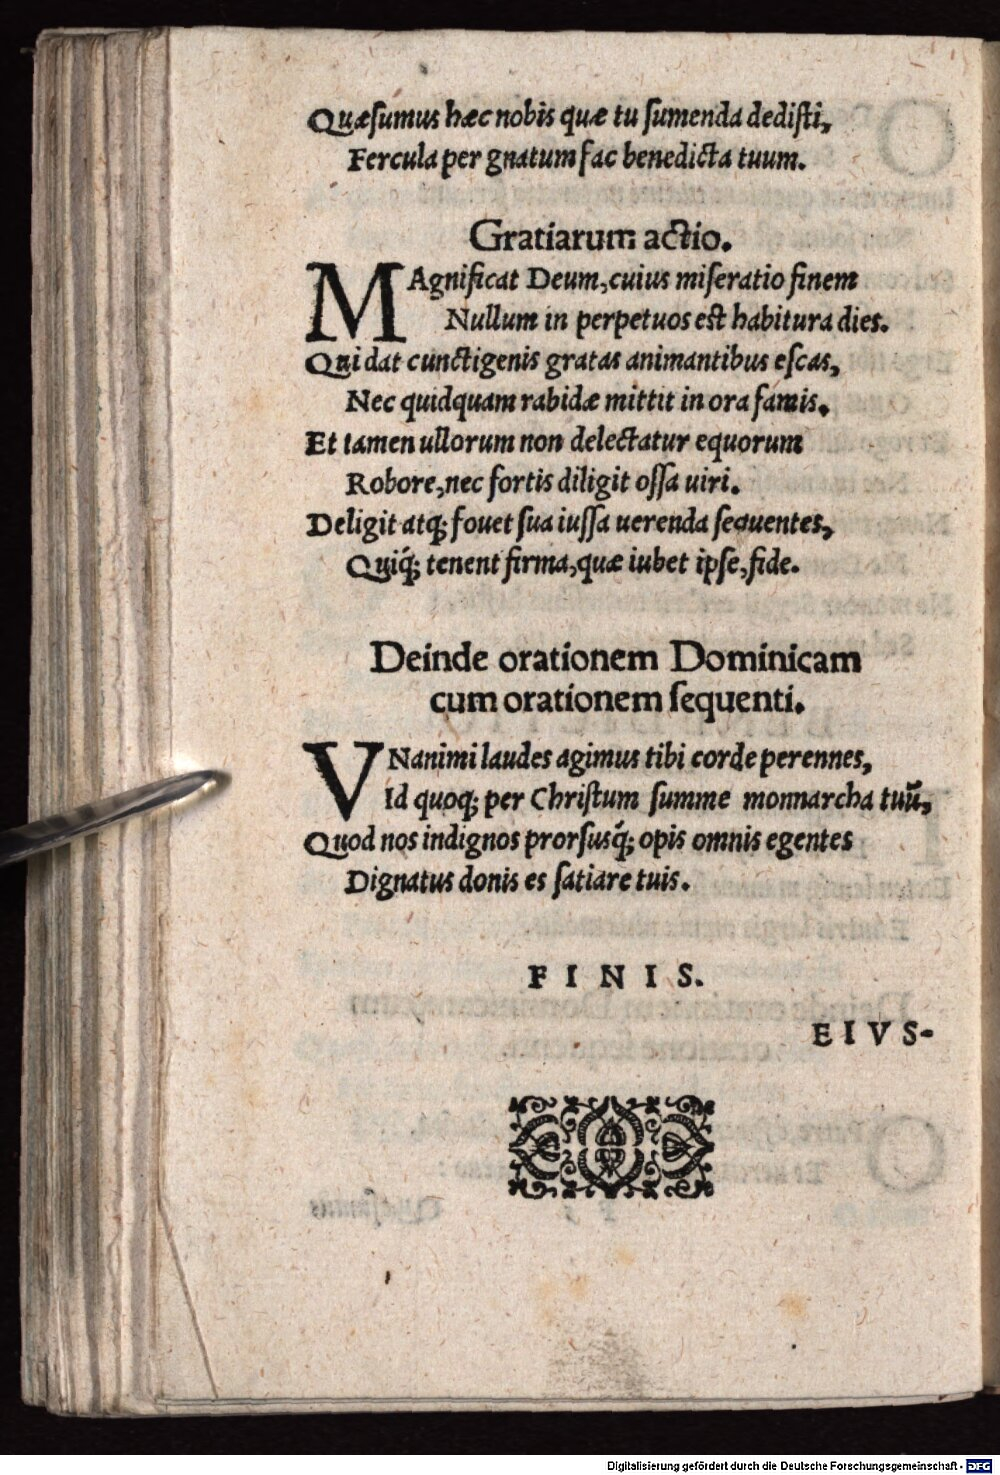 Quæſumus hæc nobis quæ tu ſumenda dediſti,
Fercula per gnatum fac benedicta tuum.
Gratiarum actio.
MAgnificat Deum, cuius miſeratio finem
Nullum in perpetuos eſt habitura dies.
Qui dat cunctigenis gratas animantibus eſcas,
Nec quidquam rabidæ mittit in ora famis.
Et tamen ullorum non delectatur equorum
Robore, nec fortis diligit oſſa uiri.
Deligit atq; fouet ſua iuſſa uerenda ſequentes,
Quiq́; tenent firma, quæ iubet ipſe, fide.
Deinde orationem Dominicam
cum orationem ſequenti.
VNanimi laudes agimus tibi corde perennes,
Id quoq; per Chriſtum ſumme monnarcha tuũ,
Quod nos indignos prorſusq́; opis omnis egentes
Dignatus donis es ſatiare tuis.
FINIS.
EIVS-
Digitalisierung gefördert durch die Deutsche Forschungsgemeinschaft - DFG